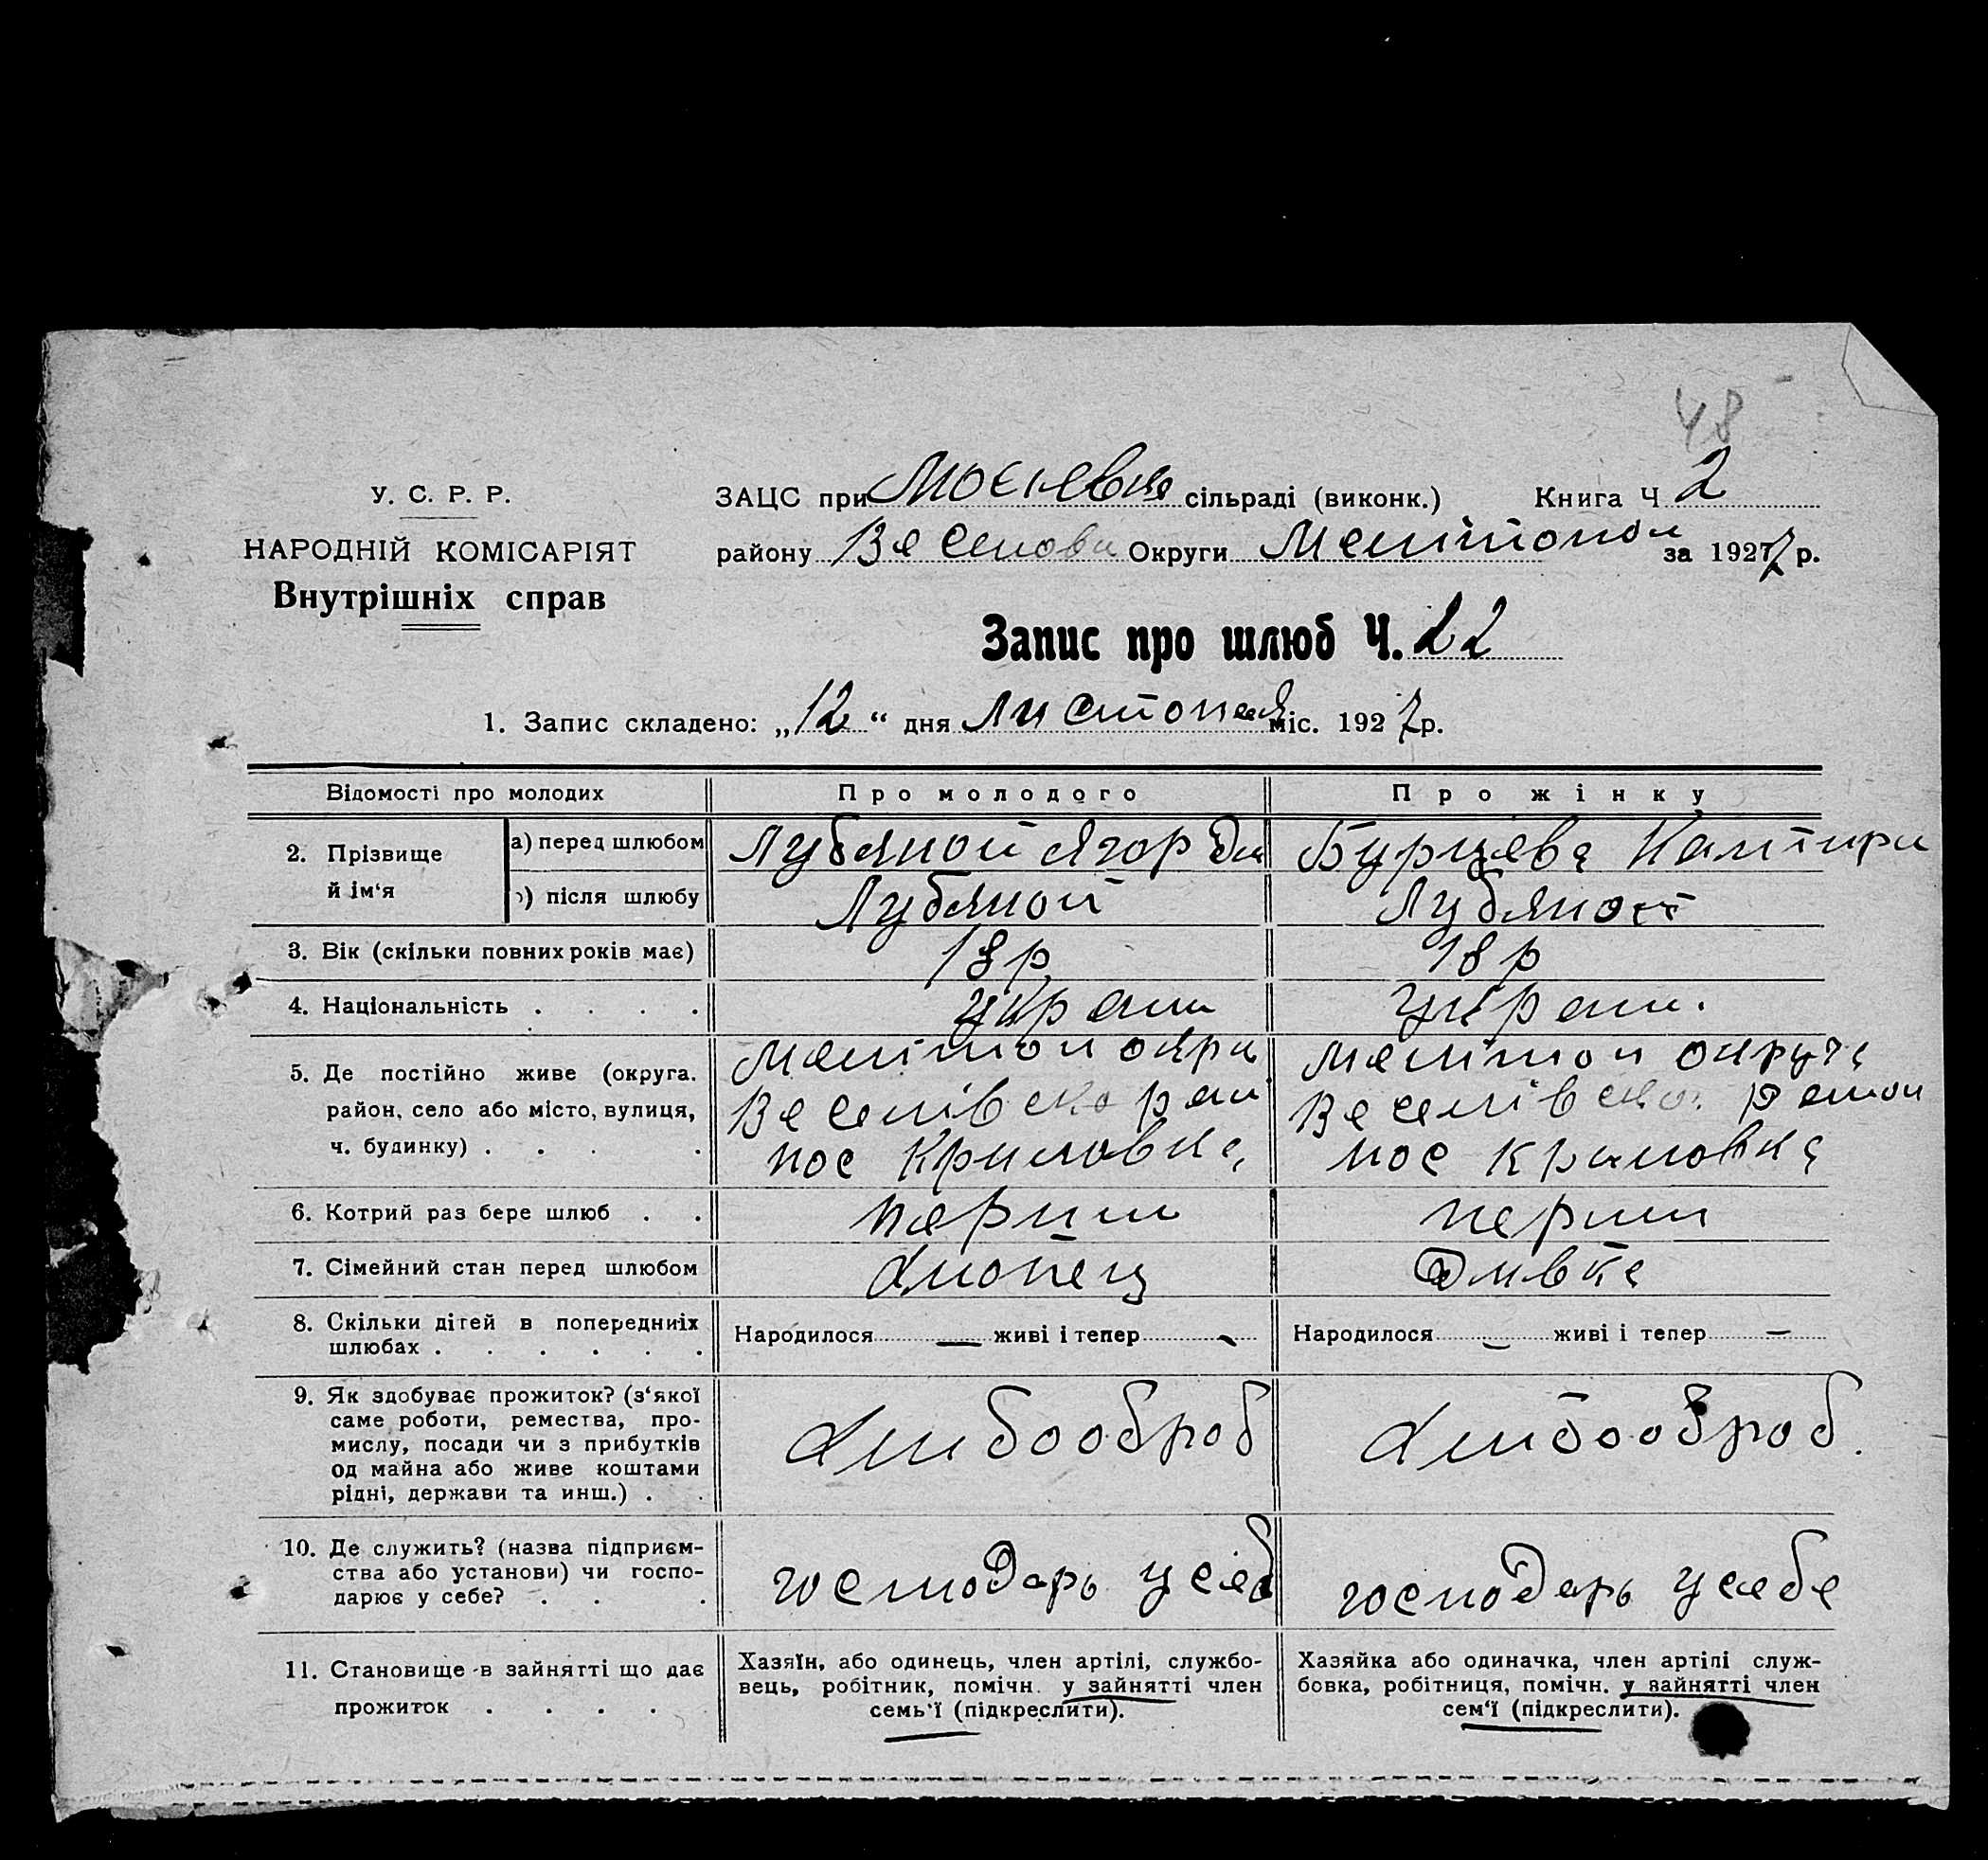 48
У. С. Р. Р.
НАРОДНІЙ КОМІСАРІЯТ
Внутрішніх справ
ЗАЦС при сільраді (виконк.) Книга Ч 2
району Веселовс Округи Мелітопол за 1927 р.
Запис про шлюб Ч. 22
1. Запис складено: „12“ дня листопад міс. 1927 р.
Відомості про молодих Про молодого Про жінку
2. Прізвище й ім‘я
а) перед шлюбом Лубяной Ягор Бурцева
б) після шлюбу Лубяной Лубяной
3. Вік (скільки повних років має) 18 р 18 р
4. Національність . . . . украін украін.
5. Де постійно живе (округа, Мелітоп окри Мелітоп округа
район, село або місто, вулиця, Веселівско рай Веселівско район
ч. будинку) . . . пос Криловка, пос Криловка
6. Котрий раз бере шлюб . . перши перши
7. Сімейний стан перед шлюбом хлопец дивка
8. Скільки дітей в попередніх Народилося — живі і тепер - Народилося - живі і тепер —
шлюбах . . . . . .
9. Як здобуває прожиток? (з‘якої
саме роботи, ремества, про-
мислу, посади чи з прибутків хлибооброб хлибооброб.
од майна або живе коштами
рідні, держави та инш.) . .
10. Де служить? (назва підприєм-
ства або установи) чи госпо- господарь у себ господарь у себе
дарює у себе? . . .
11. Становище в зайнятті що дає
прожиток . . . . .
Хазяїн, або одинець, член артілі, службо-
вець, робітник, помічн. у зайнятті член
семь‘ї (підкреслити).
Хазяйка або одиначка, член артілі служ-
бовка, робітниця, помічн. у зайнятті член
сем‘ї (підкреслити).